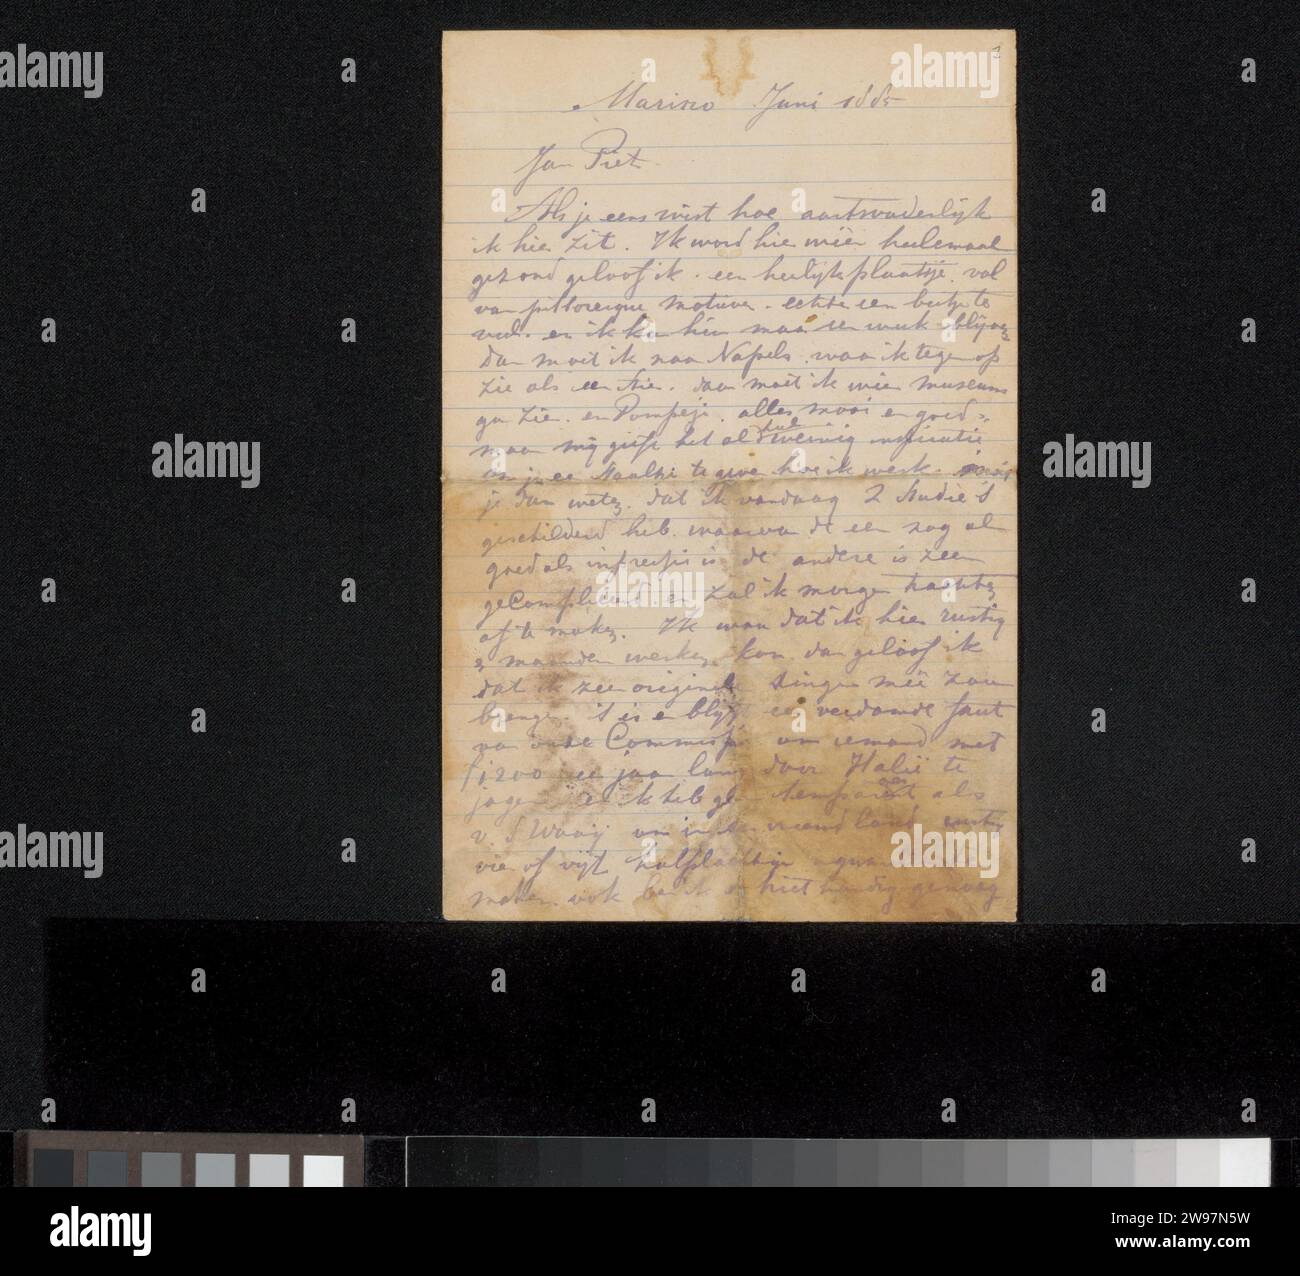 Marino Juni 1885
Jan Piet
Als je eens wist hoe aartsvaderlijk
ik hier zit. Ik word hier weer heelemaal
gezond geloof ik. een heerlijk plaatsje. vol
van pittoresque motieven. echter een beetje te
veel. en ik kan hier maar een week blijven
Dan moet ik naar Napels. waar ik tegen op
zie als een . daar moet ik weer museums
ga zien. en Pompeji. alles mooi en goed.
maar mij geeft het al heel weinig inspiratie
om je een te geven hoe ik werk. moet
je dan weten. dat ik vandaag 2 studie's
geschilderd heb. waarvan de een nog al
goed als impressie is de andere is zeer
gecompliceerd en zal ik morgen trachten
af te maken. Ik waar dat ik hier rustig
maanden werken kon dan geloof ik
dat ik zeer origineele dingen meê zou
brengen. 't is en blijft een verdomde faut
van onze Commissie om iemand met
f1200 een jaar lang door Italië te
jagen en ik heb geen als
v. d Waaij om in een vreemd land eens
vier of vijf te
maken. ook ben ik er niet handig genoeg
alamy
Image ID: 2W97N5W
www.alamy.com